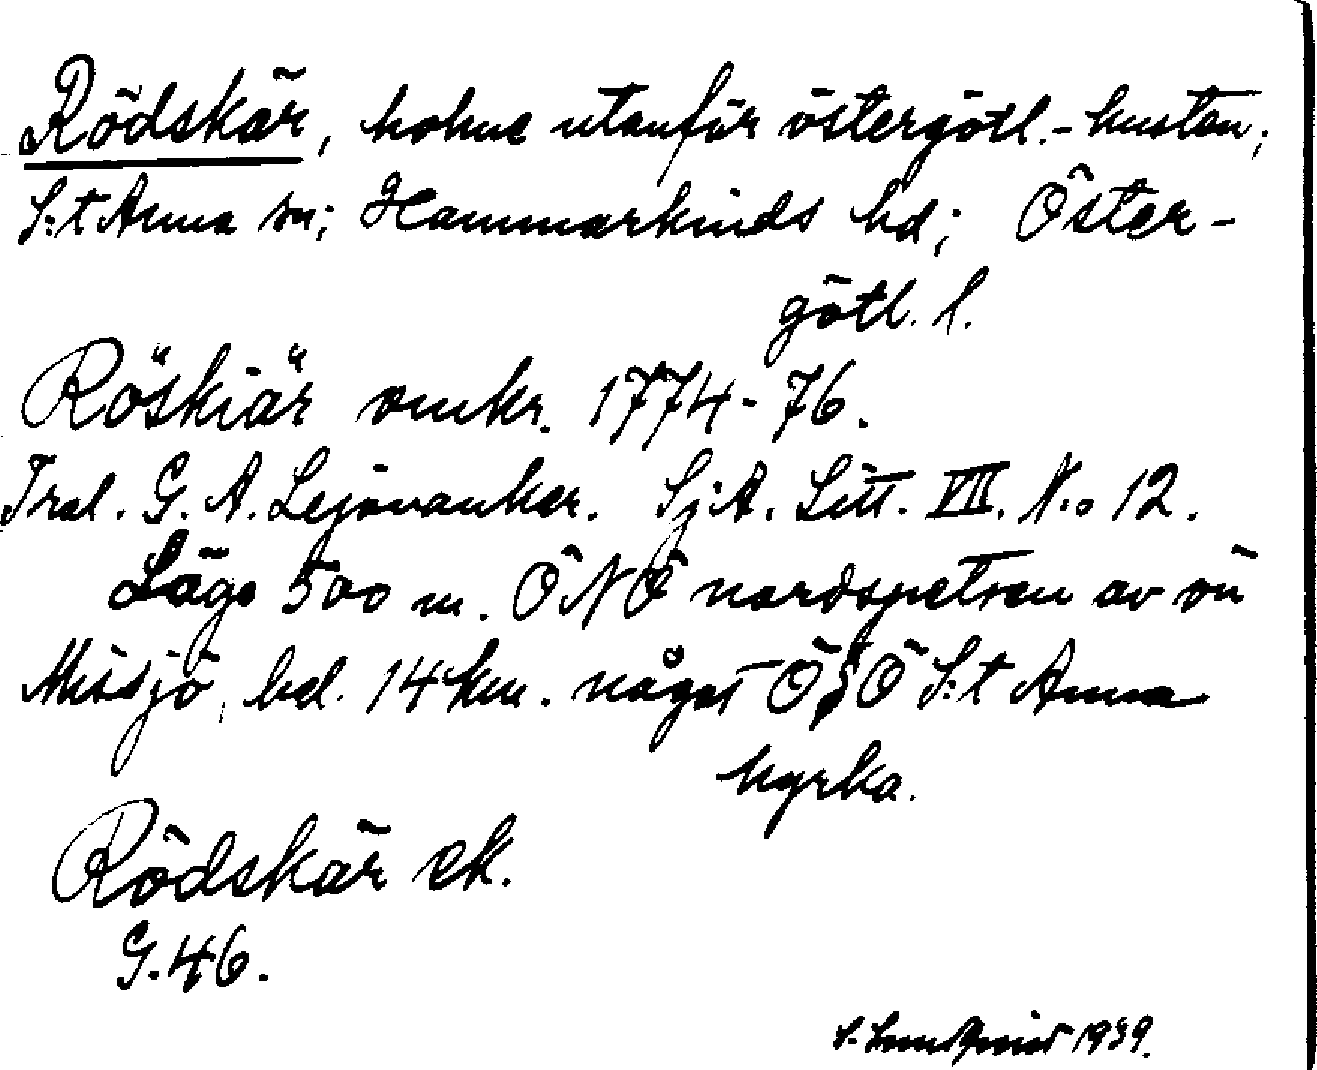 Rödskär, holme utanför östergötl.-kusten;
S:t Anna sn; Hammarkinds hd; Öster-
götl. l.
Röskiär omkr. 1774-76.
Tral. G. A. Lejonanker. Sj.A. Litt. VII. N:o 12.
Läge 500 m. ÖNÖ nordspetsen av ön
Missjö, bel. 14 km. något ÖSÖ S:t Anna
kyrka.
Rödskär ek.
G.46.
S. Lundqvist 1939.